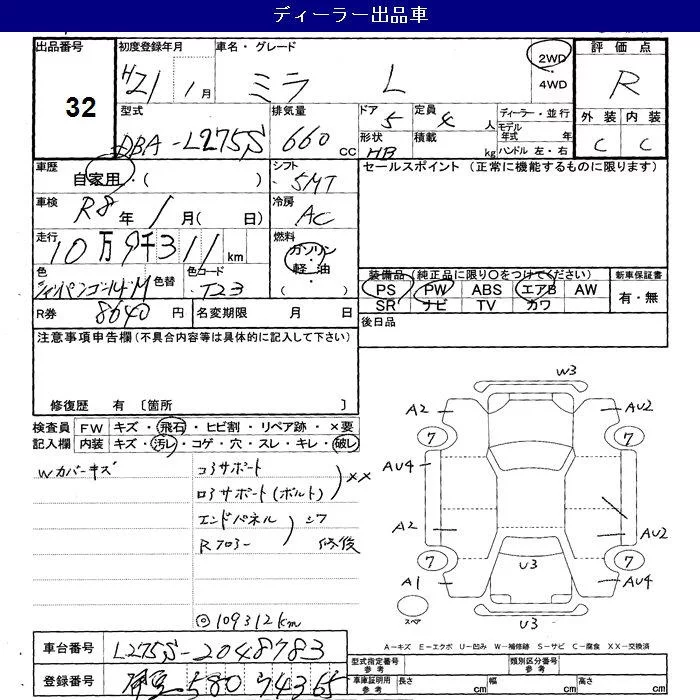 ディーラー出品車
出品番号 初度登録年月 車名・グレード 2WD 評価点
32 H21 1月 ミラ L 4WD R
型式 排気量 ドア 5 定員 4人 ディーラー・並行 外装 内装
DBA-L275S 660cc 形状 HB 積載 kg モデル年式 年 C C
ハンドル 左・右
車歴 自家用・( ) シフト 5MT セールスポイント (正常に機能するものに限ります)
車検 R8年 1月( 日) 冷房 AC
走行 10万9千311km 燃料 ガソリン・軽油・( )
色 M 色替 色コード T23 装備品(純正品に限り○をつけてください) 新車保証書
PS PW ABS エアB AW 有・無
SR ナビ TV カワ
R券 8640円 名変期限 月 日 後日品
注意事項申告欄(不具合内容等は具体的に記入して下さい)
修復歴 有 [箇所 ]
検査員 FW キズ・飛石・ヒビ割・リペア跡・×要
記入欄 内装 キズ・汚レ・コゲ・穴・スレ・キレ・破レ
Wカバーキズ
コアサポート
ロアサポート(ボルト) XX
エンドパネル
Rフロアー シワ 修復
◎109312km
W3
A2 AU2
7 7
AU4
A2 AU2
7 7
A1 U3 AU4
スペア U3
A-キズ E-エクボ U-凹み W-補修跡 S-サビ C-腐食 XX-交換済
車台番号 L275S-2048783
登録番号 580 74365
型式指定番号 参考 類別区分番号 参考
車庫証明用 参考 長さ cm 幅 cm 高さ cm